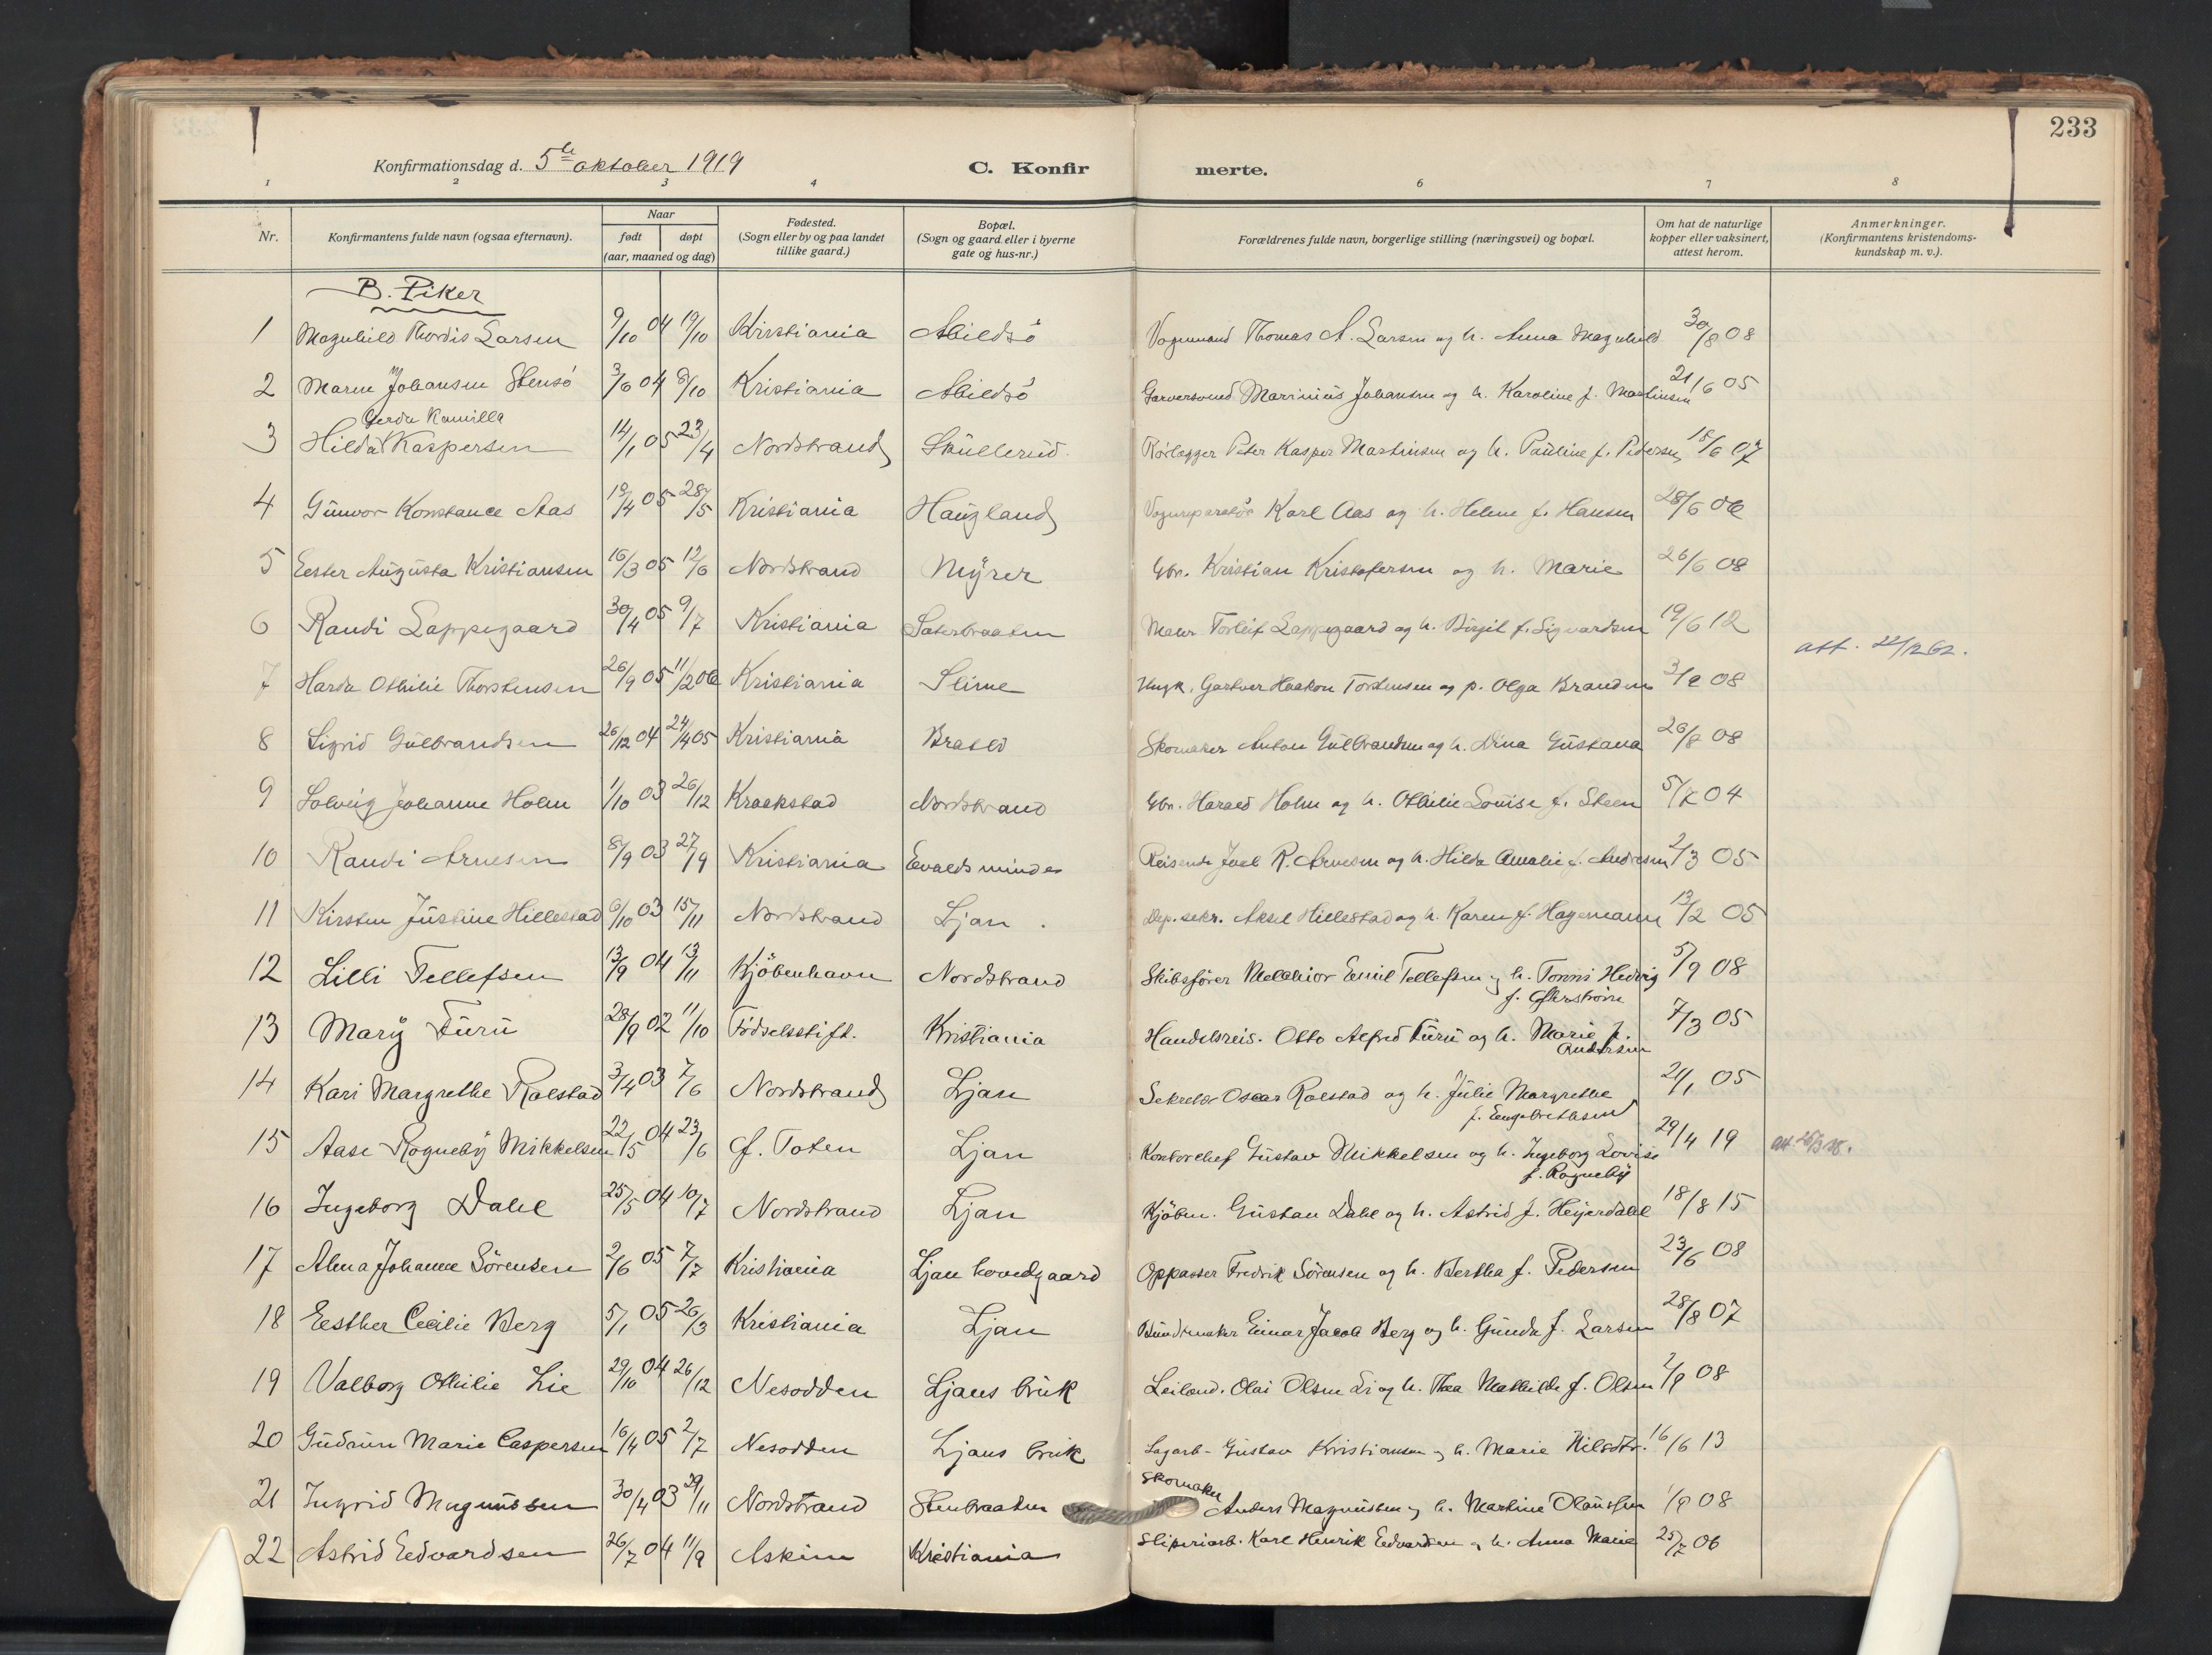 233
Konfirmationsdag d. 5te oktober 1919 C. Konfirmerte.
1 2 3 4 6 7 8
Nr. Konfirmantens fulde navn (ogsaa efternavn). Naar født døpt (aar, maaned og dag) Fødested. (Sogn eller by og paa landet tillike gaard.) Bopæl. (Sogn og gaard eller i byerne gate og hus-nr.) Forældrenes fulde navn, borgerlige stilling (næringsvei) og bopæl. Om hat de naturlige kopper eller vaksinert, attest herom. Anmerkninger. (Konfirmantens kristendoms-kundskap m. v.).
B. Piker
1 Magnhild Thordis Larsen 9/10 04 19/10 Kristiania Abildsö Vognmand Thomas A. Larsen og h. Anna Magnhild 30/8 08
2 Maren Johansen Stensö 3/6 04 9/10 Kristiania Abildsö Garversvend Marinius Johansen og h. Karoline f. Martinsen 21/6 05
Gerda Kamilla
3 Hilda Kaspersen 14/1 05 23/4 Nordstrand Skullerud. Rörlægger Peter Kasper Martinsen og h. Pauline f. Pedersen 18/6 07
4 Gunvor Konstance Aas 19/4 05 28/5 Kristiania Haugland Vognreparatör Karl Aas og h. Helene f. Hansen 28/6 06
5 Eester Augusta Kristiansen 16/3 05 12/6 Nordstrand Myrer Gbr. Kristian Kristofersen og h. Marie 26/6 08
6 Randi Lappegaard 30/4 05 9/7 Kristiania Sæterbraaten Maler Torleif Lappegaard og h. Birgit f. Sigvardsen 19/6 12
att. 22/12 62.
7 Harda Othilie Thorstensen 26/9 05 11/2 06 Kristiania Slime Ungk. Gartner Haakon Torstensen og p. Olga Brandes 3/9 08
8 Sigrid Gulbrandsen 26/12 04 24/4 05 Kristiania Bratli Skomaker Anton Gulbrandsen og h. Dina Gustava 26/8 08
9 Solveig Johanne Holm 1/10 03 26/12 Kraakstad Nordstrand Gbr. Harald Holm og h. Othilie Louise f. Steen 5/8 04
10 Randi Arnesen 8/9 03 27/9 Kristiania Evaldsminde Reisende Joel R. Arnesen og h. Hilda Amalie f. Andresen 2/3 05
11 Kirsten Justine Hillestad 6/10 03 15/11 Nordstrand Ljan. Dep.sekr. Aksel Hillestad og h. Karen f. Hagemann 13/2 05
12 Lilli Tellefsen 13/9 04 13/11 Kjöbenhavn Nordstrand Skibsförer Melchior Emil Tellefsen og h. Tonni Hedvig 5/9 08
13 Mary Furu 28/9 02 11/10 Födselsstift. Kristiania Handelsreis. Otto Alfred Furu og h. Marie f. Andersen 7/3 05
14 Kari Margrethe Rolstad 3/4 03 7/6 Nordstrand Ljan Sekretær Oscar Rolstad og h. Julie Margrethe f. Engebrethsen 21/1 05
15 Aase Rogneby Mikkelsen 22/5 04 23/6 Ö. Toten Ljan Kontorchef Gustav Mikkelsen og h. Ingeborg Lovise f. Rogneby 29/4 19
16 Ingeborg Dahl 25/5 04 10/7 Nordstrand Ljan Kjöbm. Gustav Dahl og h. Astrid f. Heyerdahl 18/8 15
17 Alma Johanne Sörensen 2/6 05 7/7 Kristiania Ljan hovedgaard Oppasser Fredrik Sörensen og h. Bertha f. Pedersen 23/6 08
18 Eesther Cecilie Berg 5/1 05 26/3 Kristiania Ljan Buntmaker Einar Jacob Berg og h. Gunda f. Larsen 28/8 07
19 Valborg Othilie Lie 29/10 04 26/12 Nesodden Ljans bruk Leilænd. Olai Olsen Li og h. Thea Mathilde f. Olsen 2/9 08
20 Gudrun Marie Caspersen 16/4 05 2/7 Nesodden Ljans bruk Sagarb. Gustav Kristiansen og h. Marie Nilsdtr. 16/6 13
21 Ingrid Magnussen 30/4 03 29/11 Nordstrand Stenbraaten Skomaker Anders Magnussen og h. Martine Olaussen 1/9 08
22 Astrid Edvardsen 26/7 04 11/9 Askim Kristiania Sliperiarb. Karl Henrik Edvardsen og h. Anna Marie 25/7 06